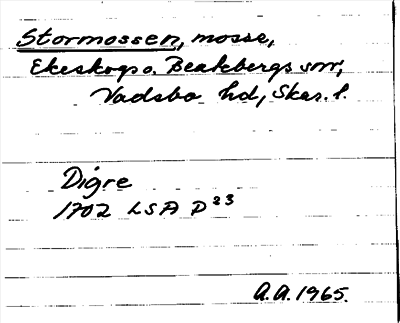 Stormossen, mosse,
Ekeskogs o. Beatebergs snr,
Vadsbo hd, Skar. l.
Digre
1702 LSA P²³
A.A. 1965.